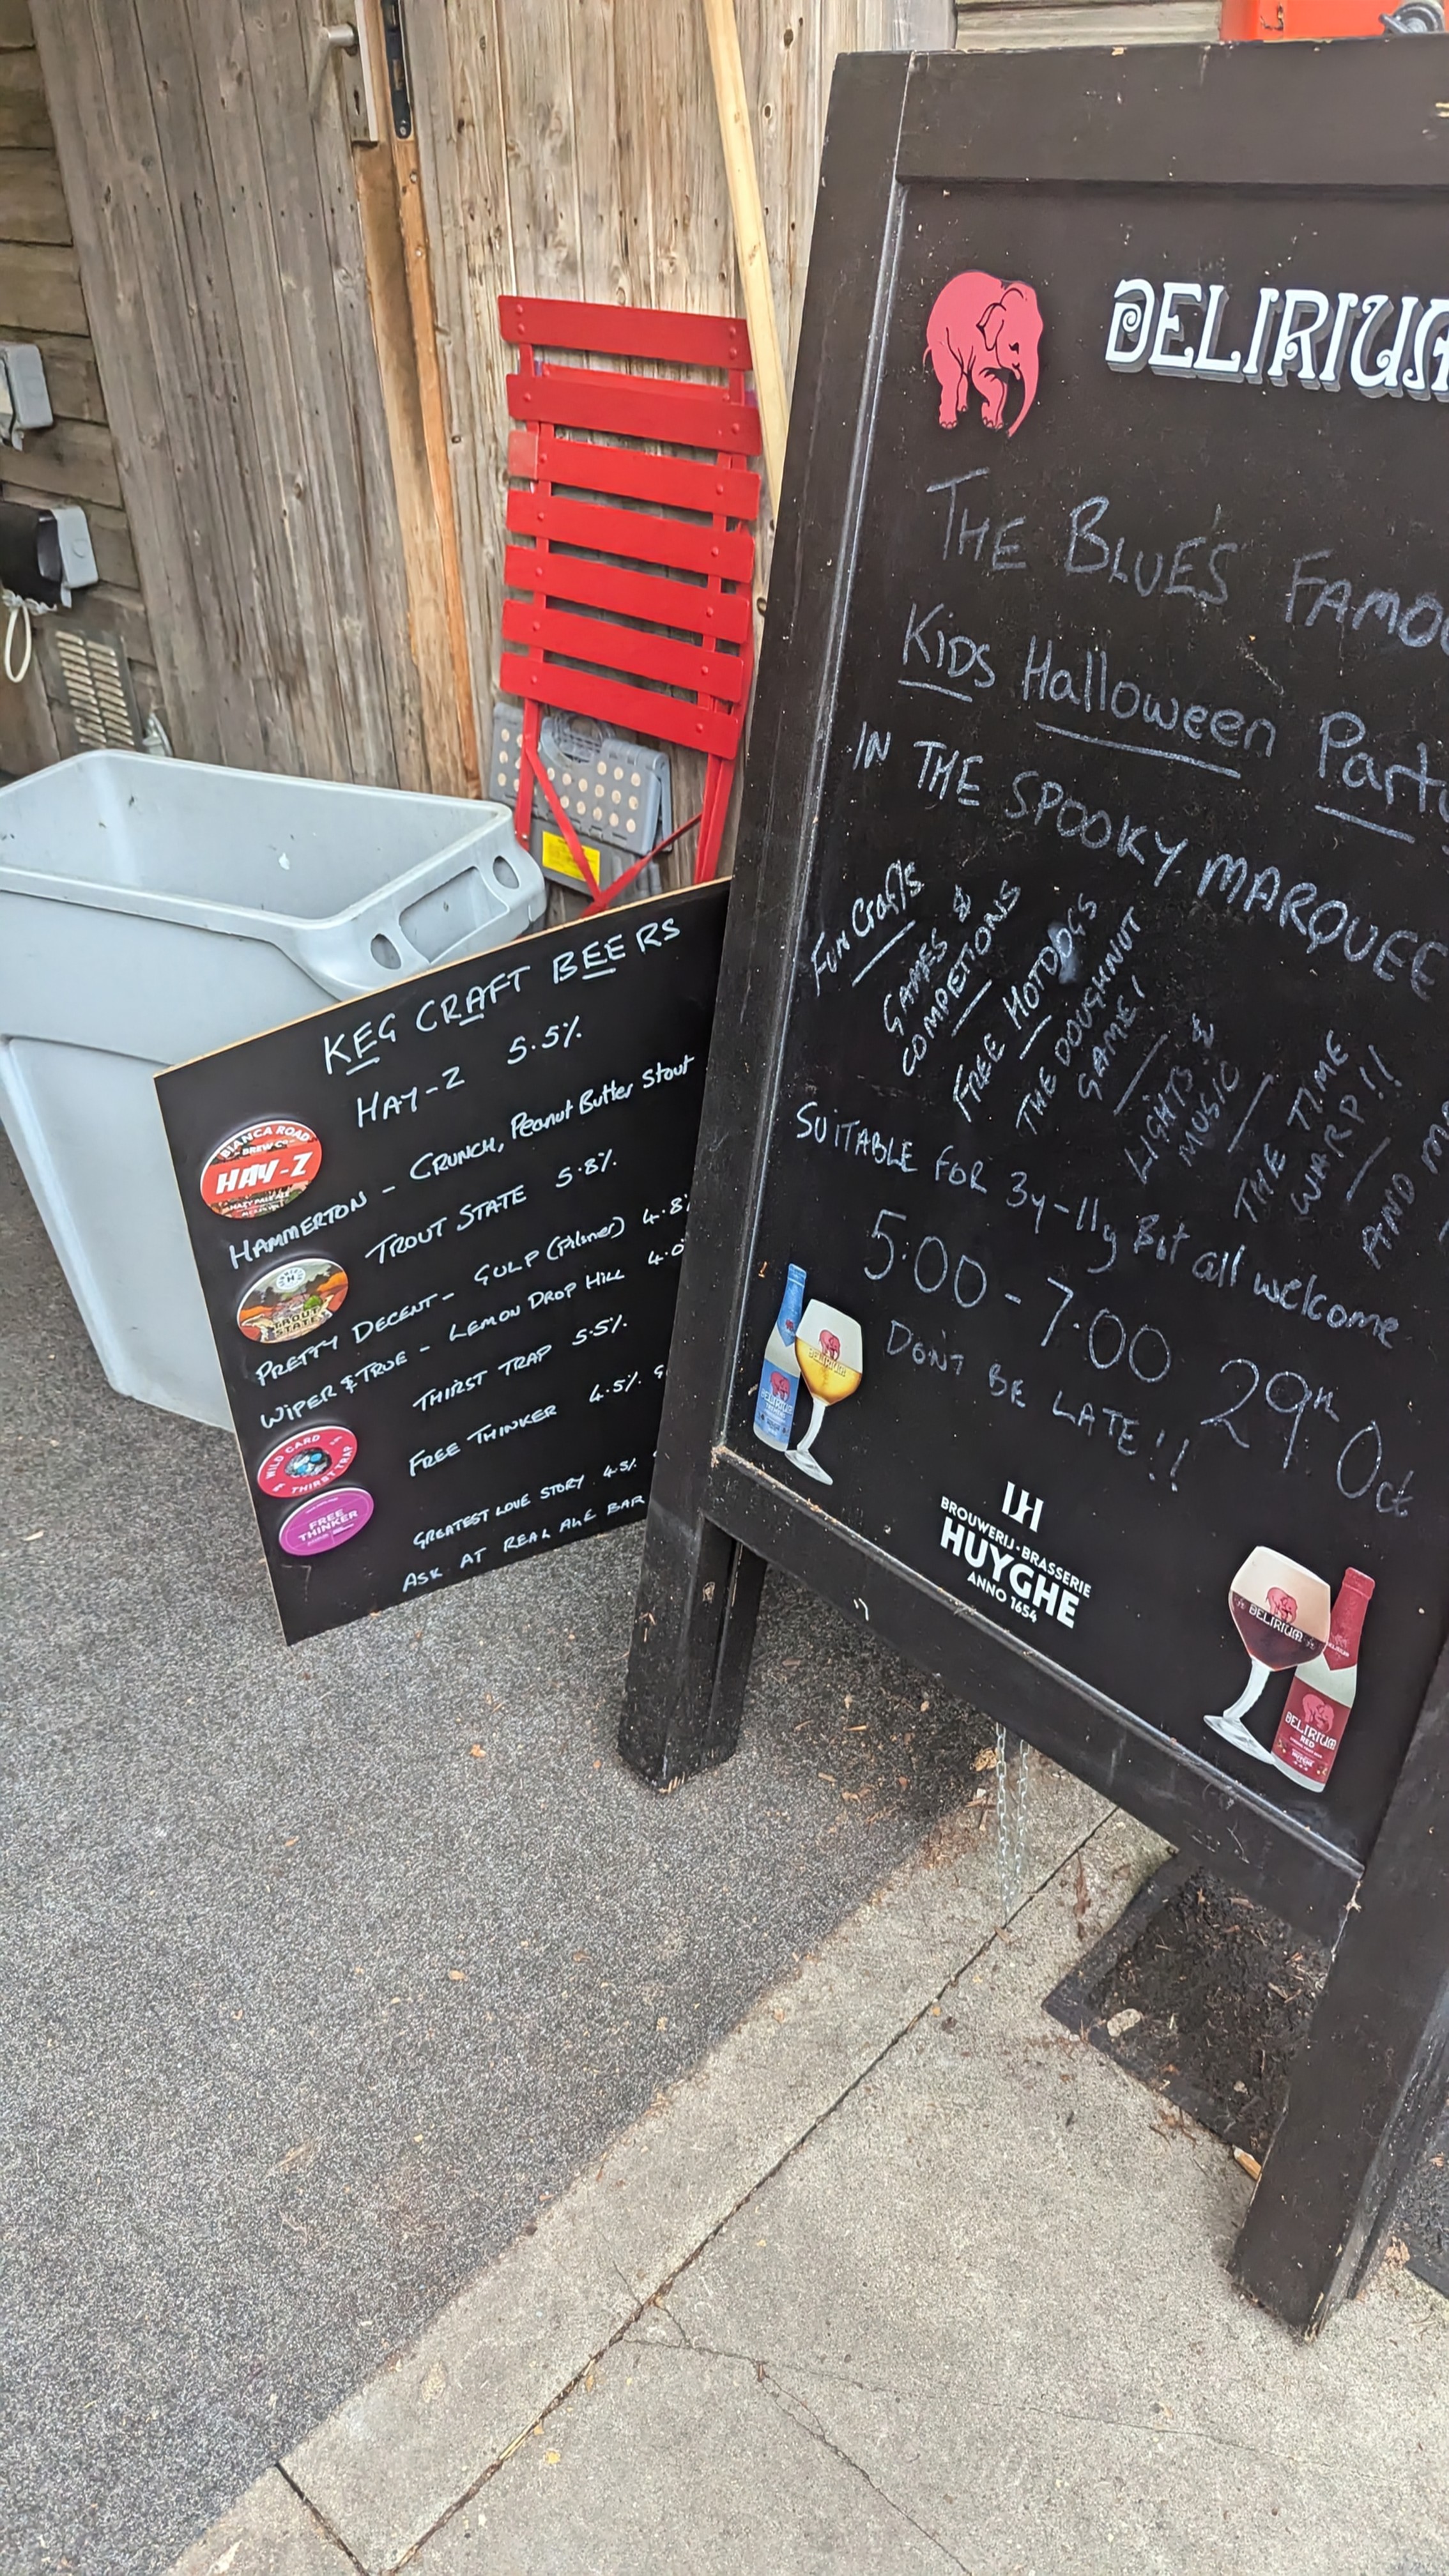 KEG CRAFT BEERS
HAY-Z 5.5%
BIANCA ROAD
BREW CO
HAY-Z
HAMMERTON - CRUNCH, Peanut Butter Stout
TROUT STATE 5.8%
TROUT
STATE
PRETTY DECENT - GULP (Pilsner) 4.8%
WIPER & TRUE - LEMON DROP HILL 4.0
THIRST TRAP 5.5%
WILD CARD
THIRST TRAP
FREE THINKER 4.5%
FREE
THINKER
GREATEST LOVE STORY 4.5%
ASK AT REAL ALE BAR
DELIRIUM
THE BLUES FAMO
KiDS Halloween Party
IN THE SPOOKY MARQUEE
FUN CRAFTS
GAMES &
COMPETIONS
FREE HOTDOGS
THE DOUGHNUT
GAME!
LIGHTS &
MUSIC
THE TIME
WARP!!
AND
SUITABLE FOR 3y-11y But all welcome
5:00-7:00 29th Oct
DON'T BE LATE!!
DELIRIUM
DELIRIUM
BROUWERIJ·BRASSERIE
HUYGHE
ANNO 1654
DELIRIUM
DELIRIUM
RED